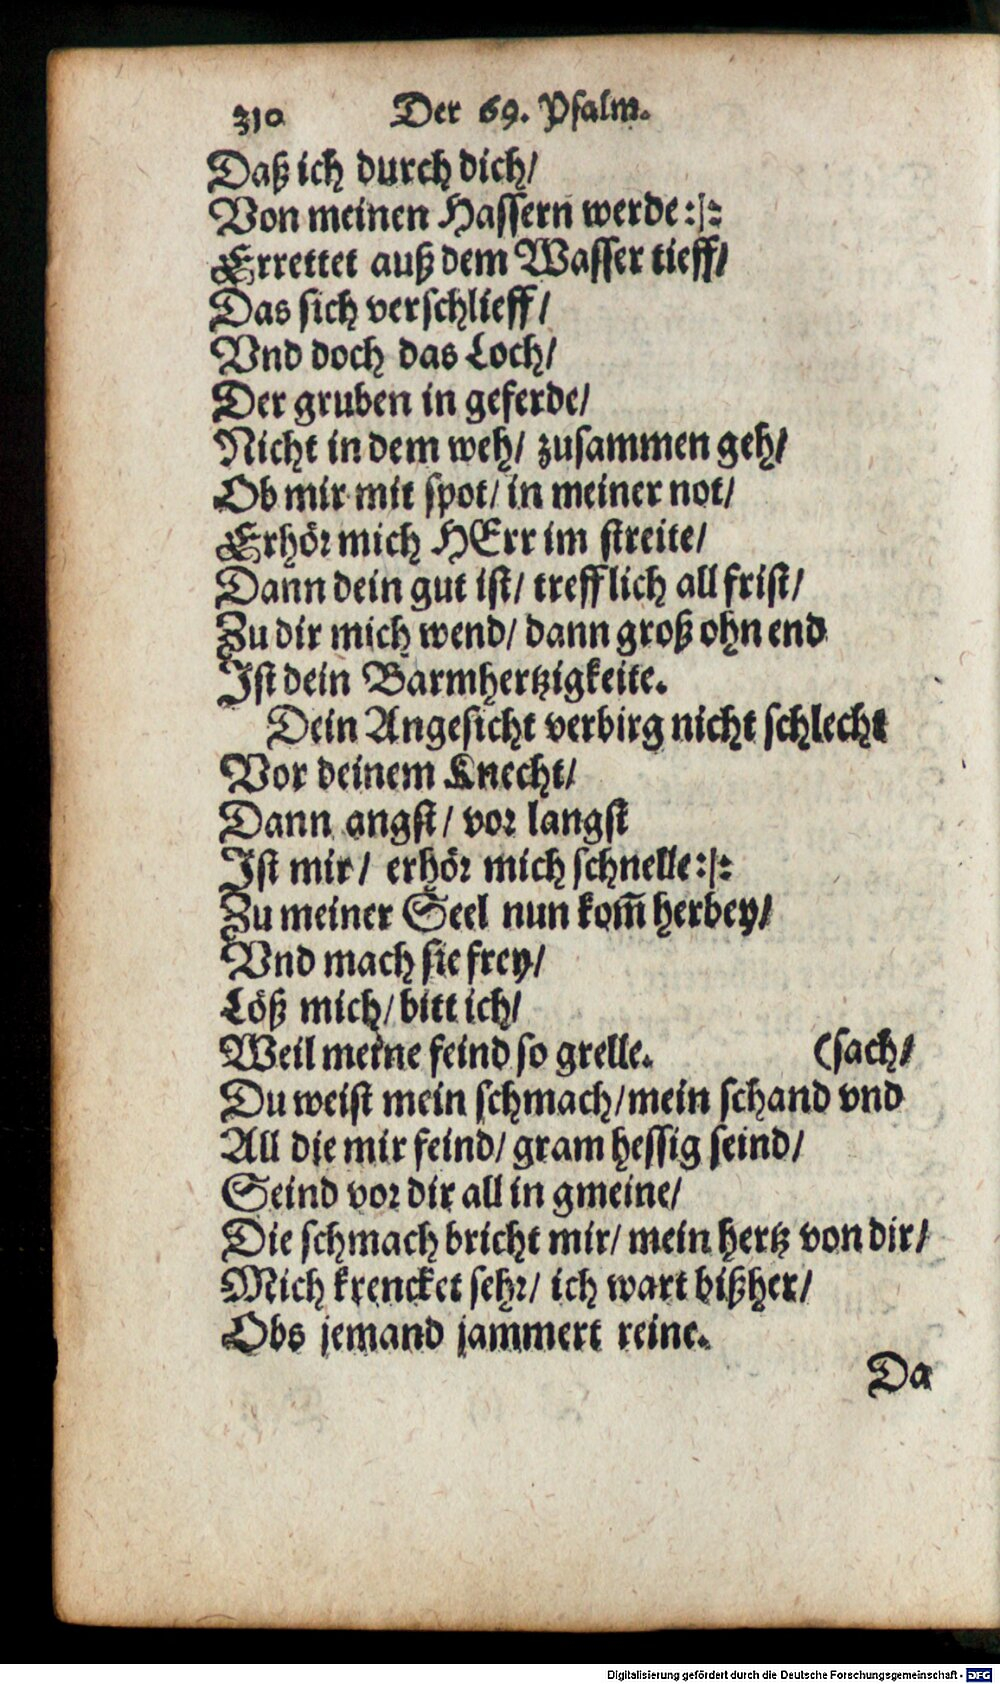 310 Der 69. Psalm.
Daß ich durch dich/
Von meinen Hassern werde:|:
Errettet auß dem Wasser tieff/
Das sich verschlieff/
Vnd doch das Loch/
Der gruben in geferde/
Nicht in dem weh/ zusammen geh/
Ob mir mit spot/ in meiner not/
Erhör mich HErr im streite/
Dann dein gut ist/ trefflich all frist/
Zu dir mich wend/ dann groß ohn end
Ist dein Barmhertzigkeite.
Dein Angesicht verbirg nicht schlecht
Vor deinem Knecht/
Dann angst/ vor langst
Ist mir/ erhör mich schnelle:|:
Zu meiner Seel nun kom̃ herbey/
Vnd mach sie frey/
Löß mich/ bitt ich/
Weil meine feind so grelle. (sach/
Du weist mein schmach/ mein schand vnd
All die mir feind/ gram hessig seind/
Seind vor dir all in gmeine/
Die schmach bricht mir/ mein hertz von dir/
Mich krencket sehr/ ich wart bißher/
Obs jemand jammert reine.
Da
Digitalisierung gefördert durch die Deutsche Forschungsgemeinschaft - DFG